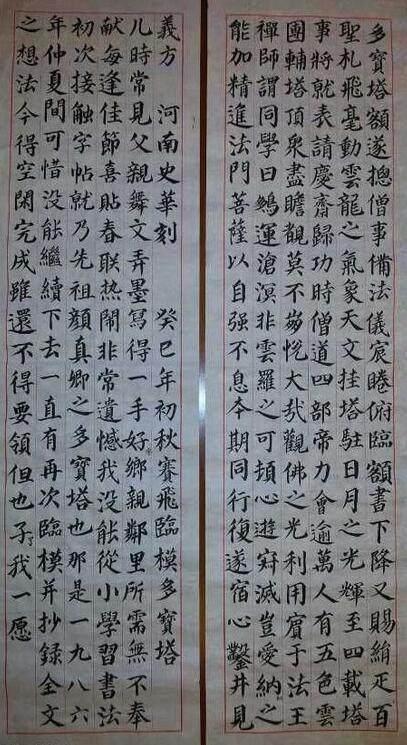 多寶塔額遂摠僧事備法儀宸睠俯臨額書下降又賜絹疋百
聖札飛毫動雲龍之氣象天文挂塔駐日月之光輝至四載塔
事將就表請慶齋歸功時僧道四部帝力會逾萬人有五色雲
團輔塔頂衆盡瞻覩莫不崩悅大哉觀佛之光利用賓于法王
禪師謂同學曰鵬運滄溟非雲羅之可頓心遊寂滅豈愛納之
能加精進法門菩薩以自强不息夲期同行復遂宿心鑿井見
義方 河南史華刻 癸巳年初秋賽飛臨模多寶塔
儿時常見父親舞文弄墨寫得一手好鄉親鄰里所需無不奉
献每逢佳節喜貼春联热鬧非常遺憾我没能從小學習書法
初次接触字帖就乃先祖顏真卿之多寶塔也那是一九八六
年仲夏間可惜没能繼續下去一直有再次臨模并抄録全文
之想法今得空閑完成雖還不得要領但也子了我一愿